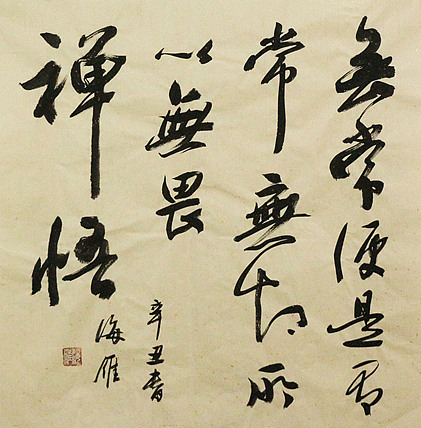 無常便是有
常無知所
以無畏
禅悟
辛丑春
海雁